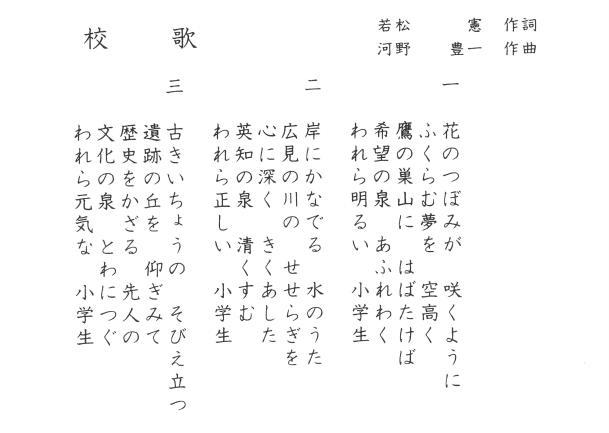 校歌
若松 憲 作詞
河野 豊一 作曲
一
花のつぼみが 咲くように
ふくらむ夢を 空高く
鷹の巣山に はばたけば
希望の泉 あふれわく
われら明るい 小学生
二
岸にかなでる 水のうた
広見の川の せせらぎを
心に深く きくあした
英知の泉 清くすむ
われら正しい 小学生
三
古きいちょうの そびえ立つ
遺跡の丘を 仰ぎみて
歴史をかざる 先人の
文化の泉 とわにつぐ
われら元気な 小学生